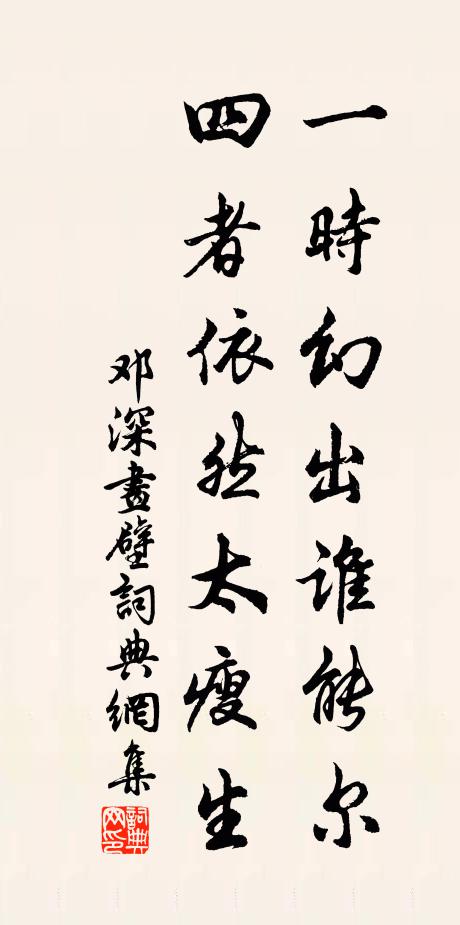 一時幻出誰能尔
四者依然太瘦生
邓深畫壁詞典網集
詞典
网印